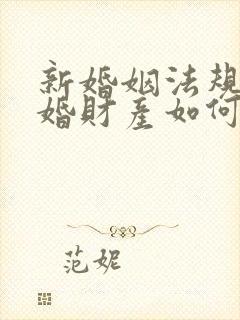 新婚姻法规
婚財產如何
范妮